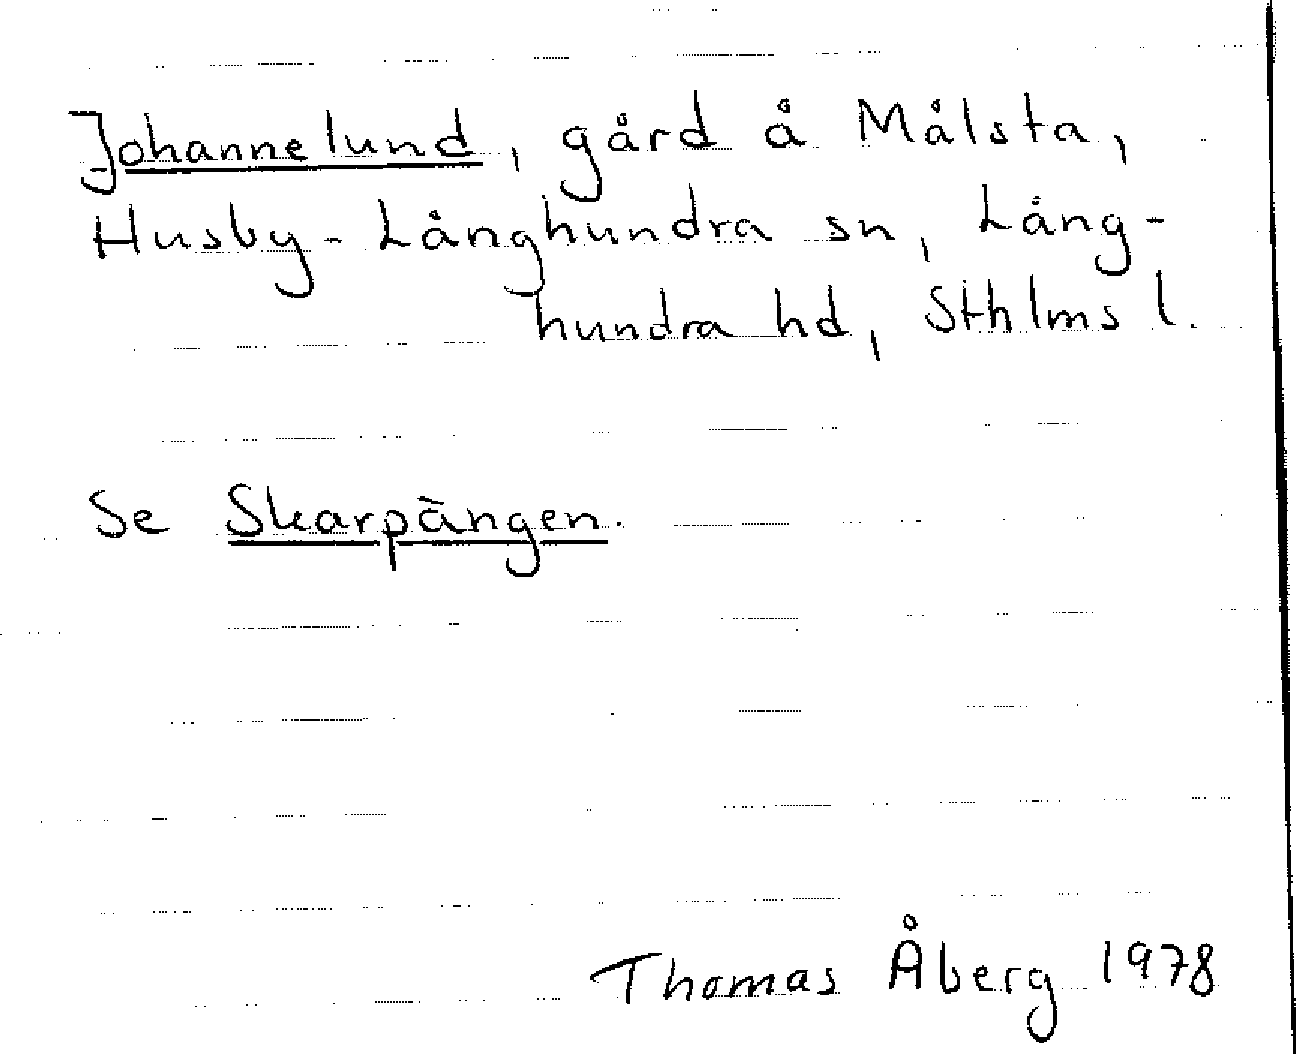 Johannelund, gård å Målsta,
Husby-Långhundra sn, Lång-
hundra hd, Sthlms l.
Se Skarpängen.
Thomas Åberg 1978